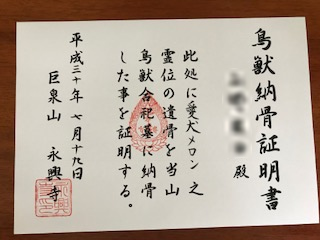 鳥獣納骨証明書
殿
此処に愛犬メロン之
霊位の遺骨を当山
鳥獣合祀墓に納骨
した事を証明する。
平成三十年七月十九日
巨泉山 永興寺